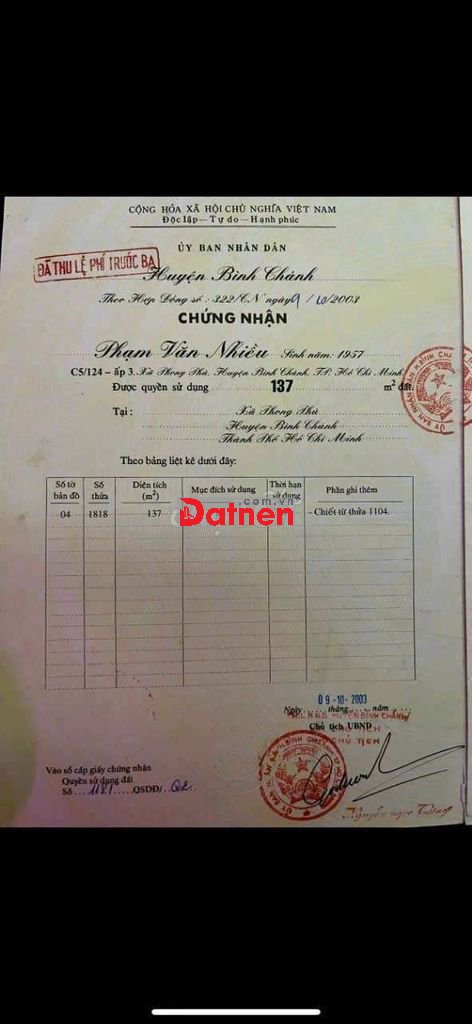 CỘNG HÒA XÃ HỘI CHỦ NGHĨA VIỆT NAM
Độc lập — Tự do — Hạnh phúc
ỦY BAN NHÂN DÂN
ĐÃ THU LỆ PHÍ TRƯỚC BẠ
Huyện Bình Chánh
Theo Hợp Đồng số : 322/CN ngày 9 / 10/2003
CHỨNG NHẬN
Phạm Văn Nhiều Sinh năm: 1957
C5/124 – ấp 3. Xã Phong Phú, Huyện Bình Chánh, TP. Hồ Chí Minh
Được quyền sử dụng 137 m² đất.
Tại : Xã Phong Phú
Huyện Bình Chánh
Thành Phố Hồ Chí Minh
Theo bảng liệt kê dưới đây:
Số tờ bản đồ Số thửa Diện tích (m²) Mục đích sử dụng Thời hạn sử dụng Phần ghi thêm
04 1818 137 - Chiết từ thửa 1104.
Datnen
.com.vn
09-10-2003
Ngày.....tháng.....năm.....
Chủ tịch UBND
CHỦ TỊCH
Vào sổ cấp giấy chứng nhận
Quyền sử dụng đất
Số 1181 QSDĐ/ Q2
Nguyễn Ngọc Tưởng